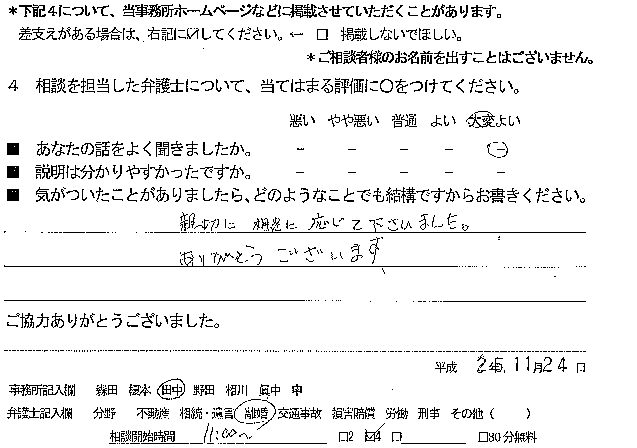 *下記4について、当事務所ホームページなどに掲載させていただくことがあります。
差支えがある場合は、右記に☑してください。← □ 掲載しないでほしい。
*ご相談者様のお名前を出すことはございません。
4 相談を担当した弁護士について、当てはまる評価に〇をつけてください。
悪い やや悪い 普通 よい 大変よい
■ あなたの話をよく聞きましたか。 − − − −
■ 説明は分かりやすかったですか。 − − − − −
■ 気がついたことがありましたら、どのようなことでも結構ですからお書きください。
親切に 相談に 応じて下さいました。
ありがとう ございます
ご協力ありがとうございました。
平成 25, 11月24日
事務所記入欄 森田 榎本 田中 野田 相川
弁護士記入欄 分野 不動産 相続・遺言 離婚 交通事故 損害賠償 労働 刑事 その他( )
相談開始時間 11:00~ □2 ☑4 □ □30分無料